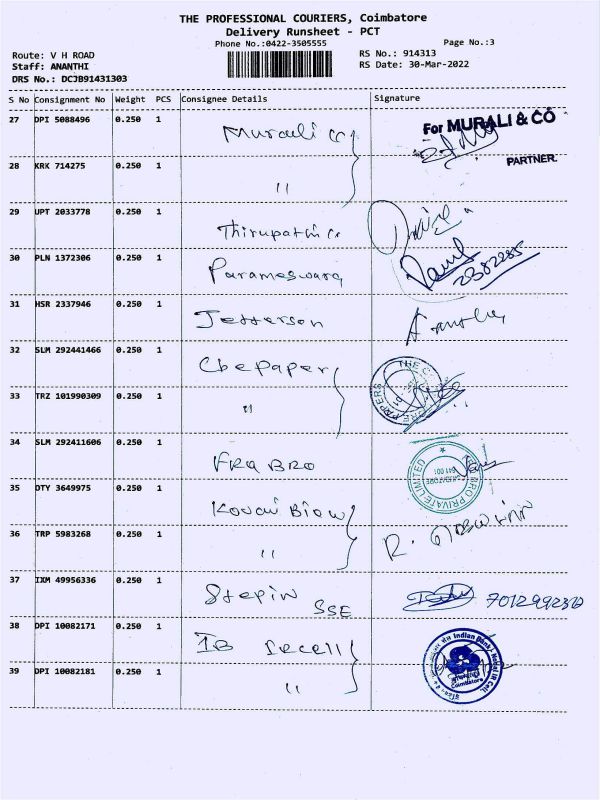 THE PROFESSIONAL COURIERS, Coimbatore
Delivery Runsheet - PCT
Phone No.:0422-3505555
Page No.:3
Route: V H ROAD
RS No.: 914313
Staff: ANANTHI
RS Date: 30-Mar-2022
DRS No.: DCJB91431303
S No Consignment No Weight PCS Consignee Details Signature
27 DPI 5088496 0.250 1 Murali For MURALI & CO
PARTNER.
28 KRK 714275 0.250 1 "
29 UPT 2033778 0.250 1 Thirupathi
30 PLN 1372306 0.250 1 Parameswara 2382285
31 HSR 2337946 0.250 1 Jefferson
32 SLM 292441466 0.250 1 Cbepaper
33 TRZ 101990309 0.250 1 "
34 SLM 292411606 0.250 1 FRA BRO BRO PRIVATE LIMITED
35 DTY 3649975 0.250 1
36 TRP 5983268 0.250 1 " R.
37 IXM 49956336 0.250 1 Stepin SSE
38 DPI 10082171 0.250 1 IB Indian Bank
Coimbatore
39 DPI 10082181 0.250 1 "